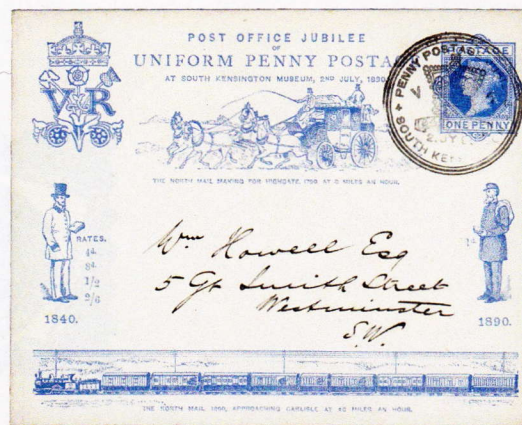 POST OFFICE JUBILEE
OF
UNIFORM PENNY POSTA
AT SOUTH KENSINGTON MUSEUM, 2ND JULY, 1890
PENNY POSTAG
SOUTH KE
V R
ONE PENNY
THE NORTH MAIL MAKING FOR HIGHGATE 1790 AT 8 MILES AN HOUR.
RATES.
4d.
8d.
1/2
2/6
1d.
Wm Howell Esq
5 Gt Smith Street
Westminster
S.W.
1840.
1890.
THE NORTH MAIL 1890, APPROACHING CARLISLE AT 48 MILES AN HOUR.